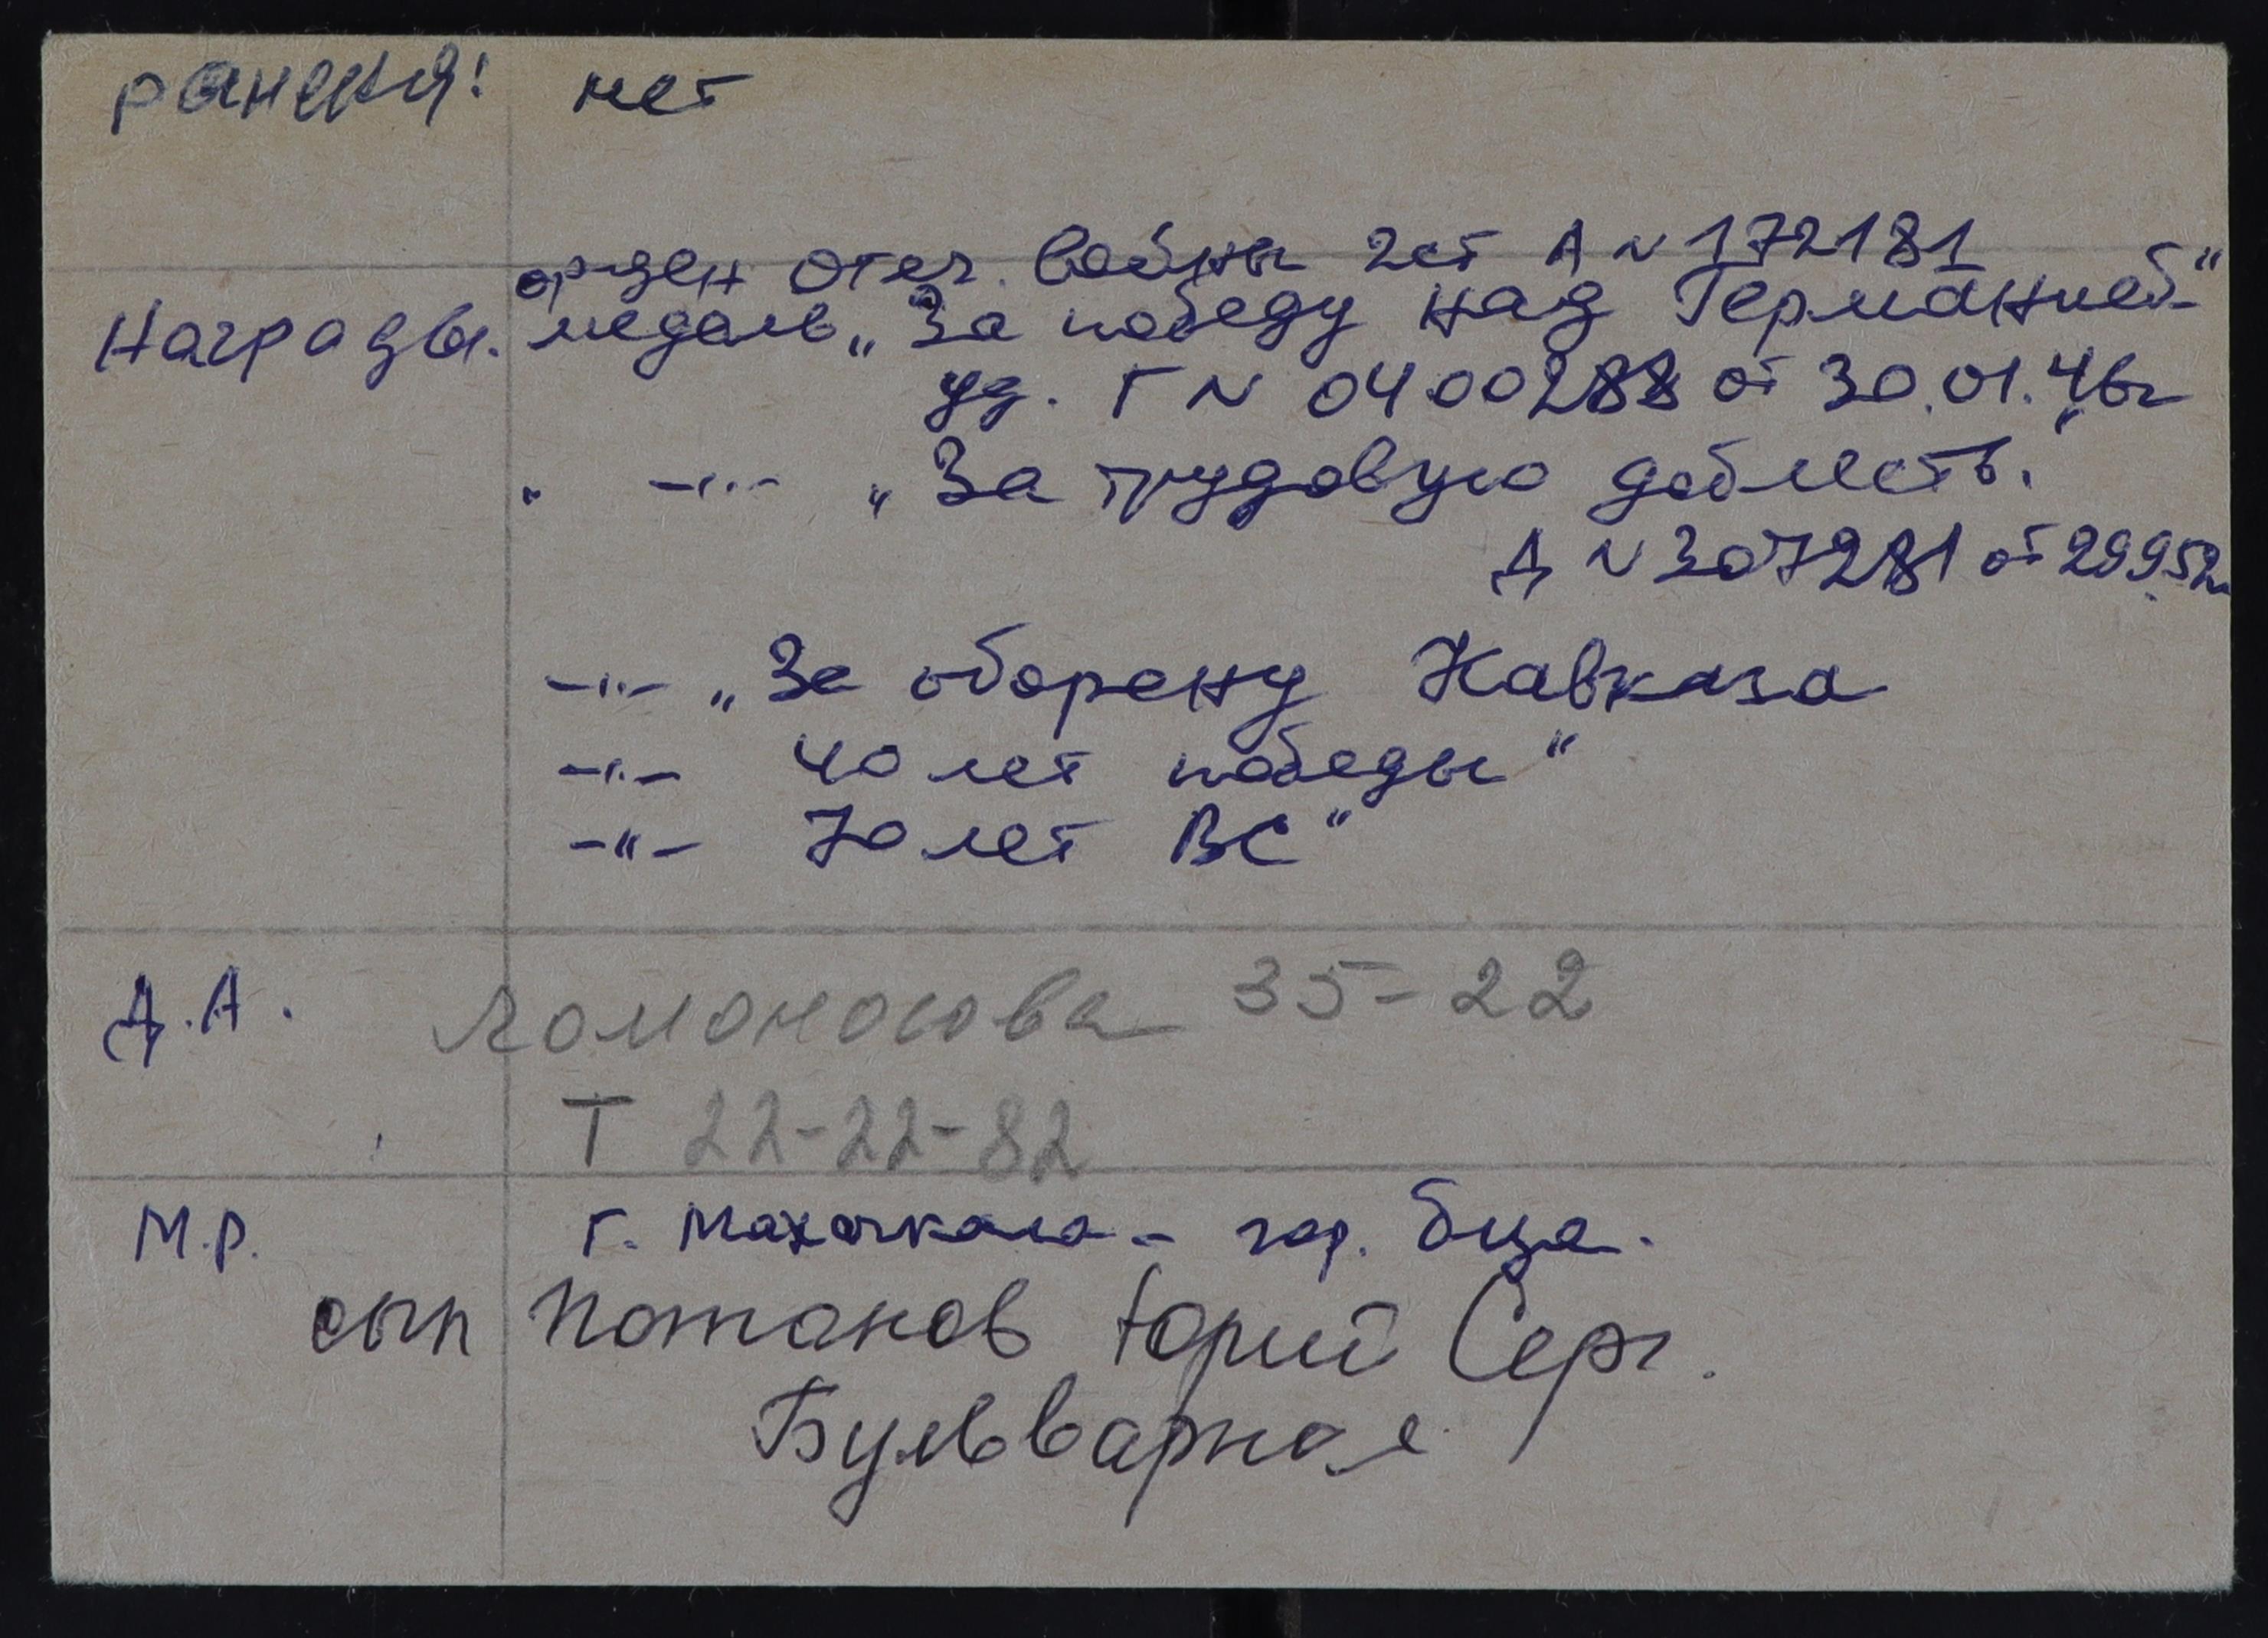 ранения: нет
орден Отеч. Войны 2ст А N 172181
Награды. медаль „За победу над Германией“
уд. Г N 0400288 от 30.01.46г
" —"— „За трудовую доблесть."
Д N 307281 от 29.9.52г
—"— „За оборону Кавказа
—"— 40 лет победы"
—"— 70 лет ВС"
Д.А. Ломоносова 35-22
Т 22-22-82
М.Р. г. Махачкала - гор. б-ца.
сын Потапов Юрий Серг.
Бульварная